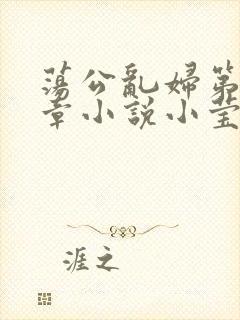 蕩公亂婦第
章小說小瑩
涯之